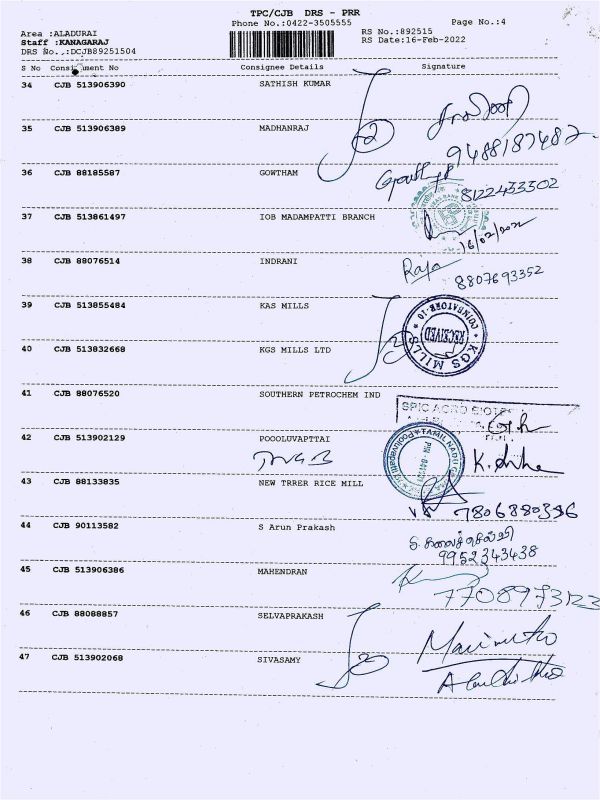 TPC/CJB DRS - PRR
Phone No.:0422-3505555 Page No.:4
Area :ALADURAI RS No.:892515
Staff :KANAGARAJ RS Date:16-Feb-2022
DRS No.,:DCJB89251504
S No Consignment No Consignee Details Signature
34 CJB 513906390 SATHISH KUMAR
35 CJB 513906389 MADHANRAJ 2
9488187482
36 CJB 88185587 GOWTHAM
8122433302
37 CJB 513861497 IOB MADAMPATTI BRANCH
16/02/2022
38 CJB 88076514 INDRANI Raja
8807693352
39 CJB 513855484 KAS MILLS
COIMBATORE-10
RECEIVED
KGS MILLS
40 CJB 513832668 KGS MILLS LTD 2
41 CJB 88076520 SOUTHERN PETROCHEM IND
SPIC AGRO BIOTE
42 CJB 513902129 POOOLUVAPTTAI
TNGB
TAMIL NADU
43 CJB 88133835 NEW TRRER RICE MILL
7806880386
44 CJB 90113582 S Arun Prakash
9952343438
45 CJB 513906386 MAHENDRAN
46 CJB 88088857 SELVAPRAKASH
47 CJB 513902068 SIVASAMY 2